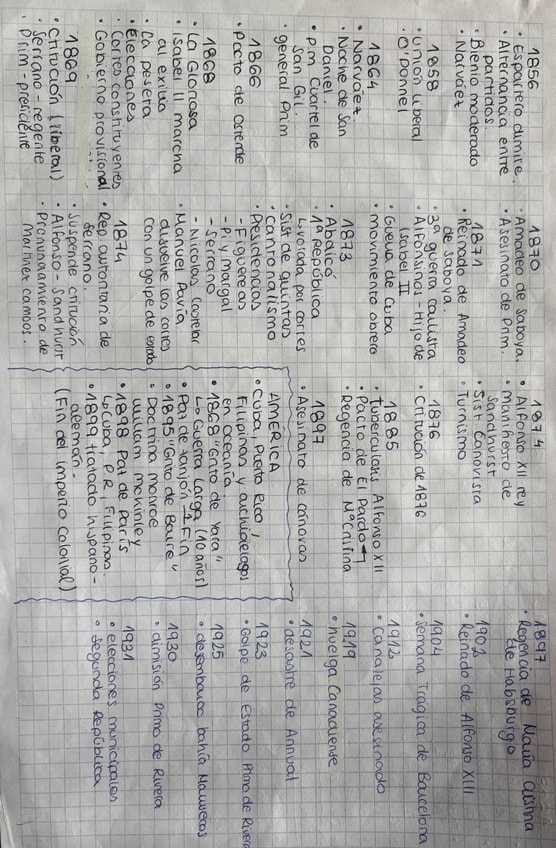 1856
• Espartero dimite.
• Alternancia entre
partidos.
• Bienio moderado
• Narváez
1858
• Unión liberal
O'Donnel
1864
• Narváez.
• Noche de San
Daniel.
• p.m Cuartel de
San Gil.
general Prim
1866
• Pacto de Ostende
1868
• La Gloriosa
• Isabel II marcha
al exilio
• La peseta
• Elecciones
• Cortes constituyentes
• Gobierno provisional
1869
• Ctitución (liberal)
Serrano - regente
• Prim - presidente
1870
• Amadeo de Saboya.
• Asesinato de Prim.
1871
• Reinado de Amadeo
de Saboya.
• 3ª guerra carlista
• Alfonsinos - Hijo de
Isabel II
• Guerra de Cuba
• movimiento obrero
1873
• Abdicó
• 1ª República
• Votada por cortes
• Sist de quintas
• Cantonalismo
• Presidencias
- Figueras
- Pi y Margal
- Serrano
- Nicolas Castelar
• Manuel Pavía
disuelve las cortes
con un golpe de estado
1874
• Rep. autoritaria de
Serrano.
• Suspende ctitución
• Alfonso - Sandhurst
• Pronunciamiento de
martínez campos.
1874
• Alfonso XII rey
• Manifiesto de
Sandhurst
• Sist Canovista
• Turnismo
1876
• Ctitución de 1876
1885
• Tuberculosis Alfonso XII
• Pacto de El Pardo
• Regencia de Mª Cristina
1897
• Asesinato de Cánovas
AMERICA
• Cuba, Puerto Rico,
Filipinas y archipielagos
en oceanía
• 1868 "Grito de Yara"
La Guerra Larga (10 años)
• Paz de Zanjón Fin
• 1895 "Grito de Baire"
• Doctrina Monroe
William McKinley
• 1898 Paz de París
Cuba, P.R, Filipinas.
• 1899 tratado hispano-
alemán.
(Fin del imperio colonial)
1897
• Regencia de María Cristina
de Habsburgo
1902
• Reinado de Alfonso XIII
1904
• Semana Trágica de Barcelona
1912
• Canalejas asesinado
1919
• huelga Canadiente
1921
• desastre de Annual
1923
• Golpe de Estado Primo de Rivera
1925
• desembarco bahía Mauvecas
1930
• dimisión Primo de Rivera
1931
• elecciones municipales
• Segunda República